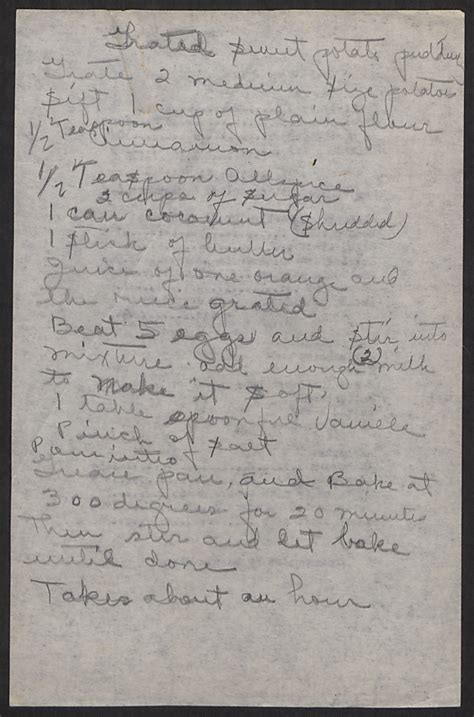 Grated sweet potato pudding
Grate 2 medium size potatoes
Sift 1 cup of plain flour
1/2 Teaspoon Cinnamon
1/2 Teaspoon Allspice
2 cups of sugar
1 can cocanut (shredded)
1 stick of butter
Juice of one orange and
the grated
Beat 5 eggs and stir into
mixture add enough (2) milk
to make it soft
1 table spoonful
Pinch of salt
Pour into
pan, and Bake at
300 degrees for 20 minutes
Then stir and let bake
until done
Takes about an hour